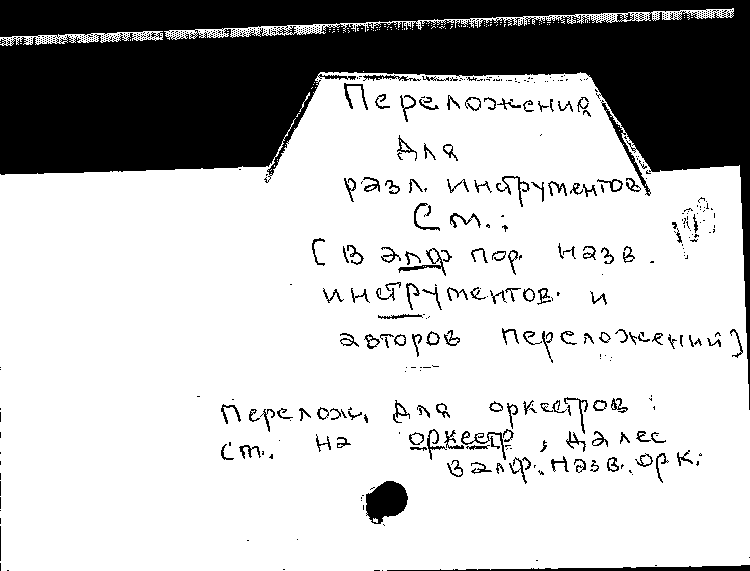 Переложения
для
разл. инструментов
См.:
[в алф. пор. назв.
инструментов и
авторов переложений]
Перелож. для оркестров:
см. на оркестр, далее
в алф. назв. орк.